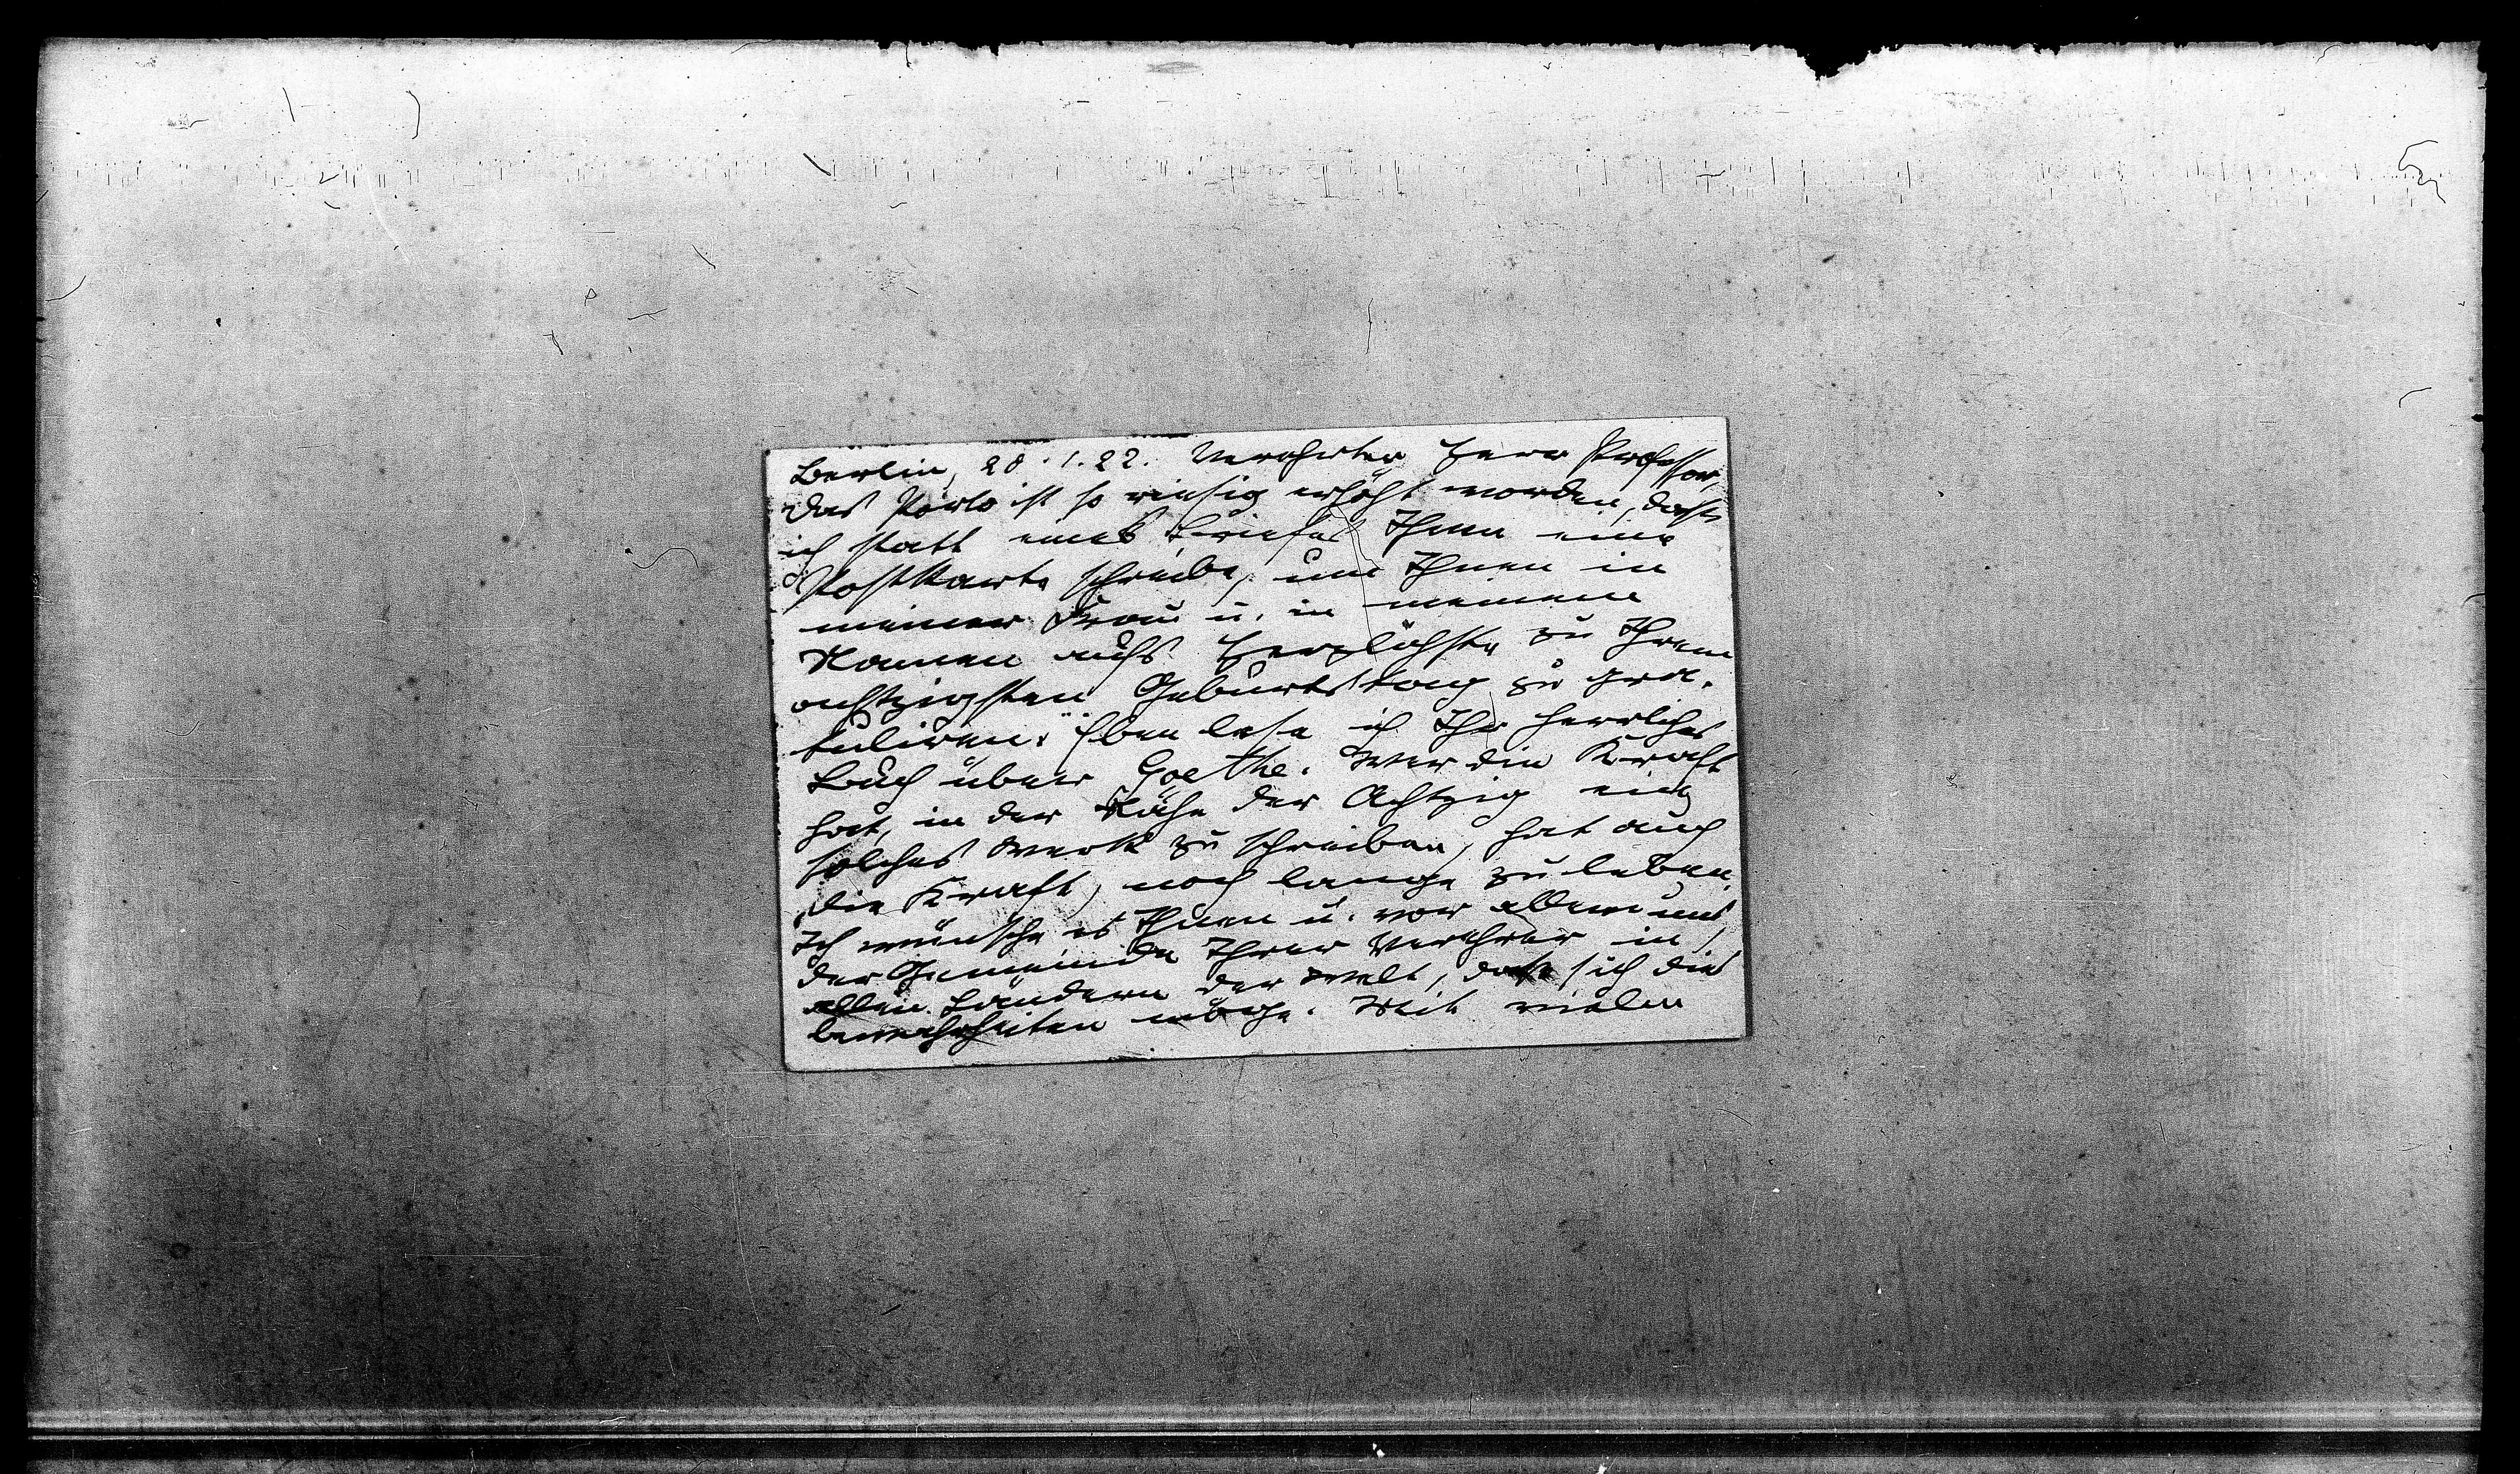 Berlin, 28.1.22. Verehrter Herr Professor,
das Porto ist so riesig erhöht worden, dass
ich statt eines Briefes Ihnen eine
Postkarte schreibe, um Ihnen in
meiner Frau u. in meinem
Namen aufs Herzlichste zu Ihrem
achtzigsten Geburtstag zu gra-
tuliren. Eben lese ich Ihr herrliches
Buch über Goethe. Wer die Kraft
hat, in der Nähe der Achtzig ein
solches Werk zu schreiben, hat auch
die Kraft, noch lange zu leben.
Ich wünsche es Ihnen u. vor allem uns,
der Gemeinde Ihrer Verehrer in
allen Ländern der Welt, dass sich dies
bewahrheiten möge. Mit vielen